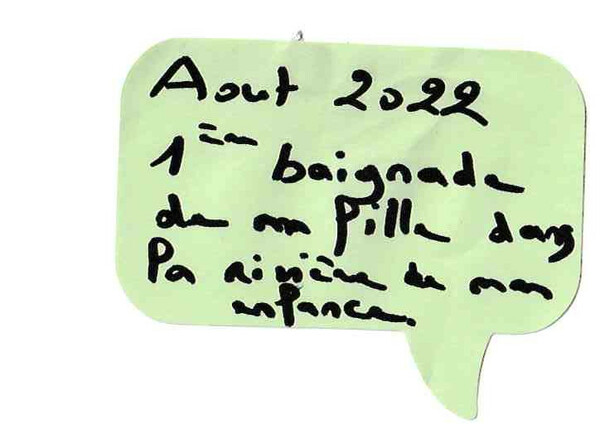 Aout 2022
1ère baignade
de ma fille dans
la rivière de mon
enfance.